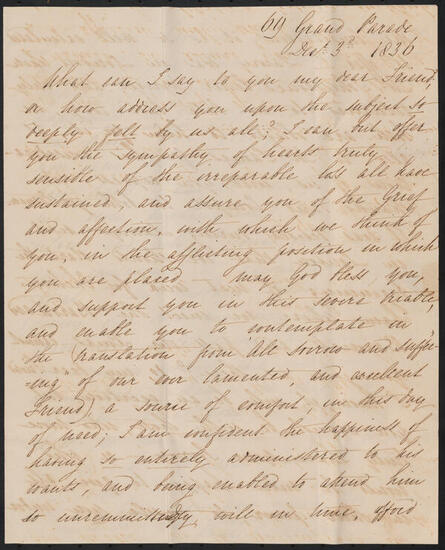 69 Grand Parade
Decr 3d 1836
What can I say to you my dear Friend,
or how address you upon the subject so
deeply felt by us all? I can but offer
you the sympathy of hearts truly
sensible of the irreparable loss all have
sustained, and assure you of the Grief
and affection, with which we think of
you, in the afflicting position in which
you are placed - may God bless you,
and support you in this severe trial,
and enable you to contemplate in
the (translation from "all sorrow and suffer-
-ing" of our ever lamented, and excellent
Friend) a source of comfort, in this day
of need; I am confident the happiness of
having so entirely administered to his
wants, and being enabled to attend him
so unremittingly will in time, afford